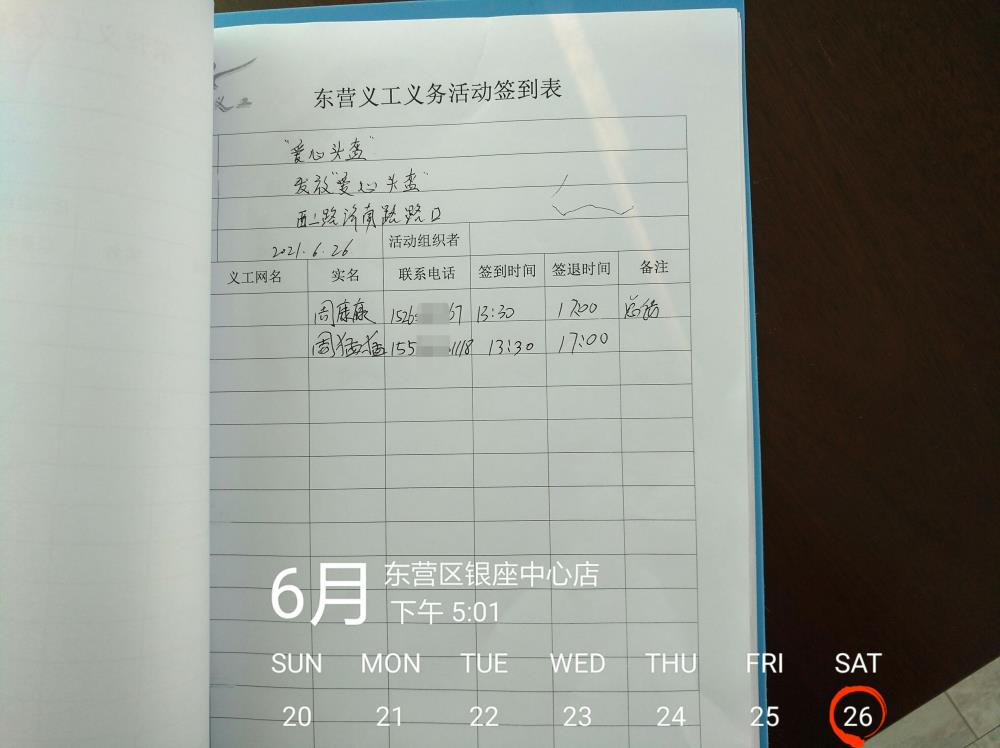 义工
东营义工义务活动签到表
"爱心头盔"
发放"爱心头盔"
西二路济南路路口
2021.6.26 活动组织者
义工网名 实名 联系电话 签到时间 签退时间 备注
周康康 1526 67 13:30 17:00
周猛猛 155 1118 13:30 17:00
6月 东营区银座中心店
下午 5:01
SUN MON TUE WED THU FRI SAT
20 21 22 23 24 25 26